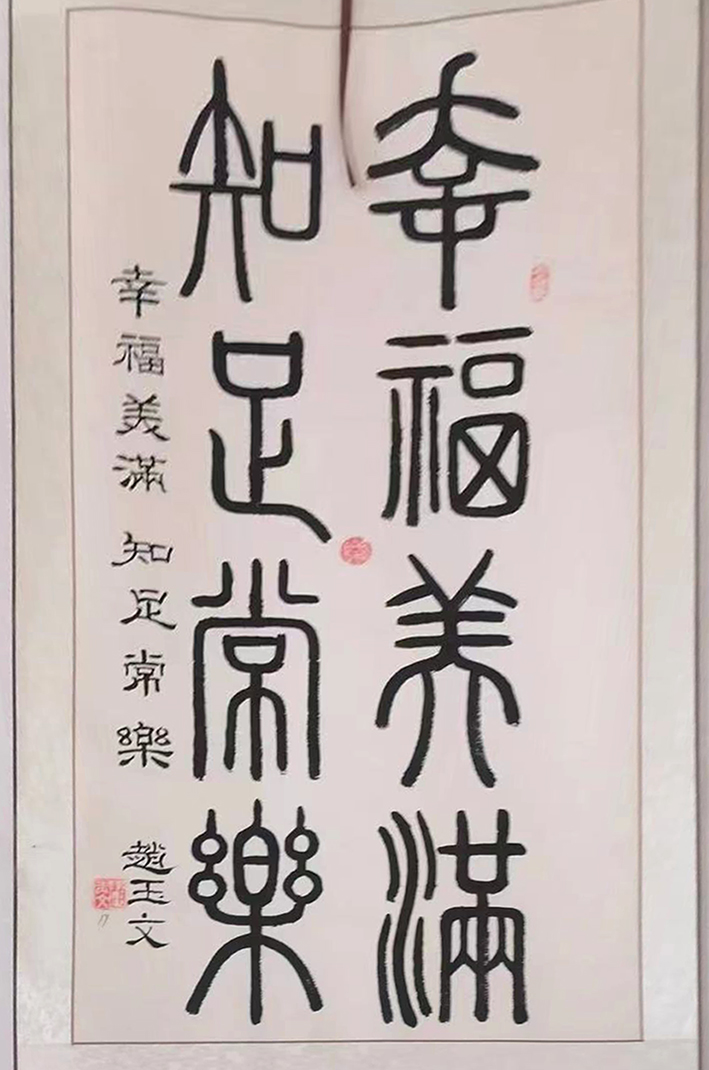 幸福美滿
知足常樂
幸福美滿 知足常樂 趙玉文